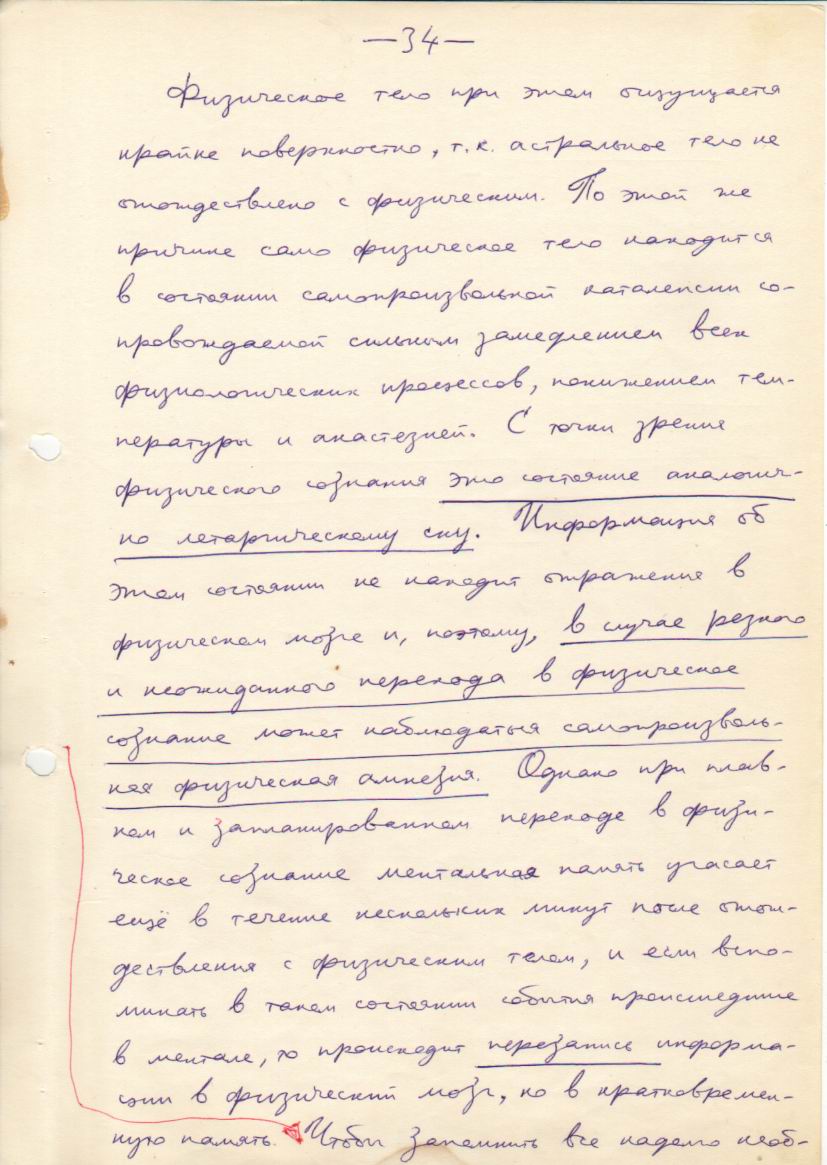 —34—
Физическое тело при этом ощущается
крайне поверхностно, т.к. астральное тело не
отождествлено с физическим. По этой же
причине само физическое тело находится
в состоянии самопроизвольной каталепсии со-
провождаемой сильным замедлением всех
физиологических процессов, понижением тем-
пературы и анастезией. С точки зрения
физического сознания это состояние аналогич-
но летаргическому сну. Информация об
этом состоянии не находит отражение в
физическом мозге и, поэтому, в случае резкого
и неожиданного перехода в физическое
сознание может наблюдаться самопроизволь-
ная физическая амнезия. Однако при плав-
ном и запланированном переходе в физи-
ческое сознание ментальная память угасает
ещё в течение нескольких минут после отож-
дествления с физическим телом, и если вспо-
минать в таком состоянии события происшедшие
в ментале, то происходит перезапись информа-
ции в физический мозг, но в кратковремен-
ную память. Чтобы запомнить все надолго необ-